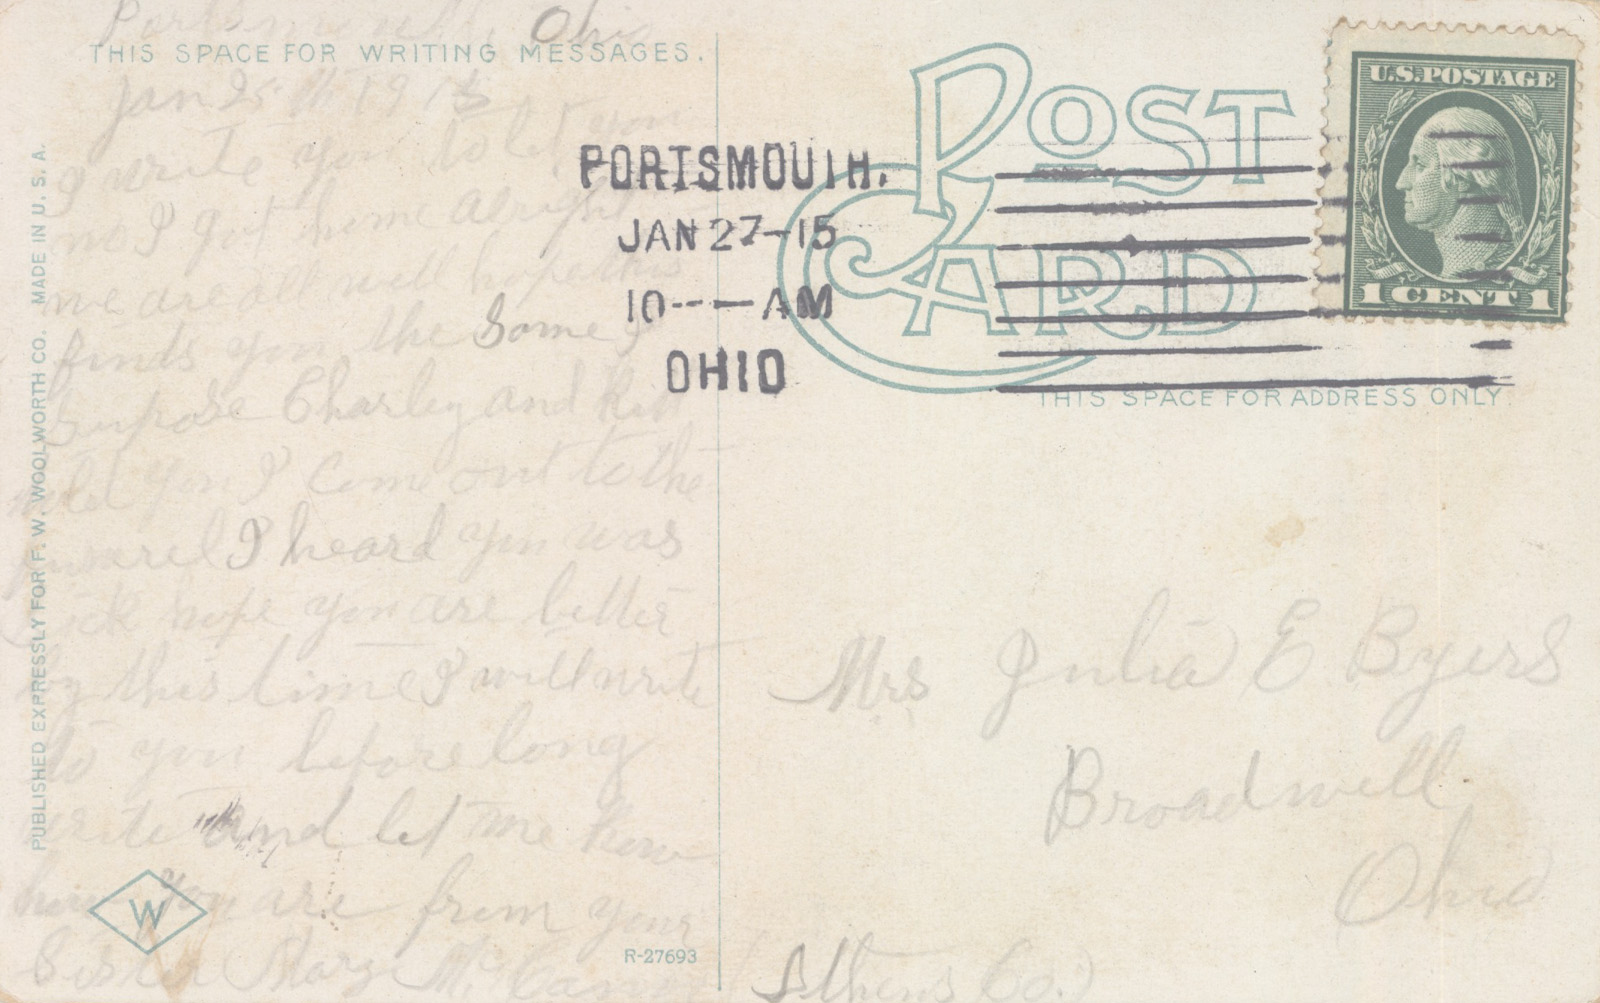 Portsmouth, Ohio
THIS SPACE FOR WRITING MESSAGES.
Jan 25 th 1915
I write you to let you
no I got home alright
we are all well hope this
finds you the Same I
Supose Charley and
you I Come out to the
I heard you was
Sick hope you are better
by this time I will write
to you before long
write and let me know
how you are from your
Sister Mary Mc
PUBLISHED EXPRESSLY FOR F. W. WOOLWORTH CO. MADE IN U. S. A.
W
R-27693
POST
CARD
THIS SPACE FOR ADDRESS ONLY.
PORTSMOUTH.
JAN 27-15
10--- AM
OHIO
U.S. POSTAGE
1 CENT 1
Mrs Julia E Byers
Broadwell
Ohio
(Athens Co.)